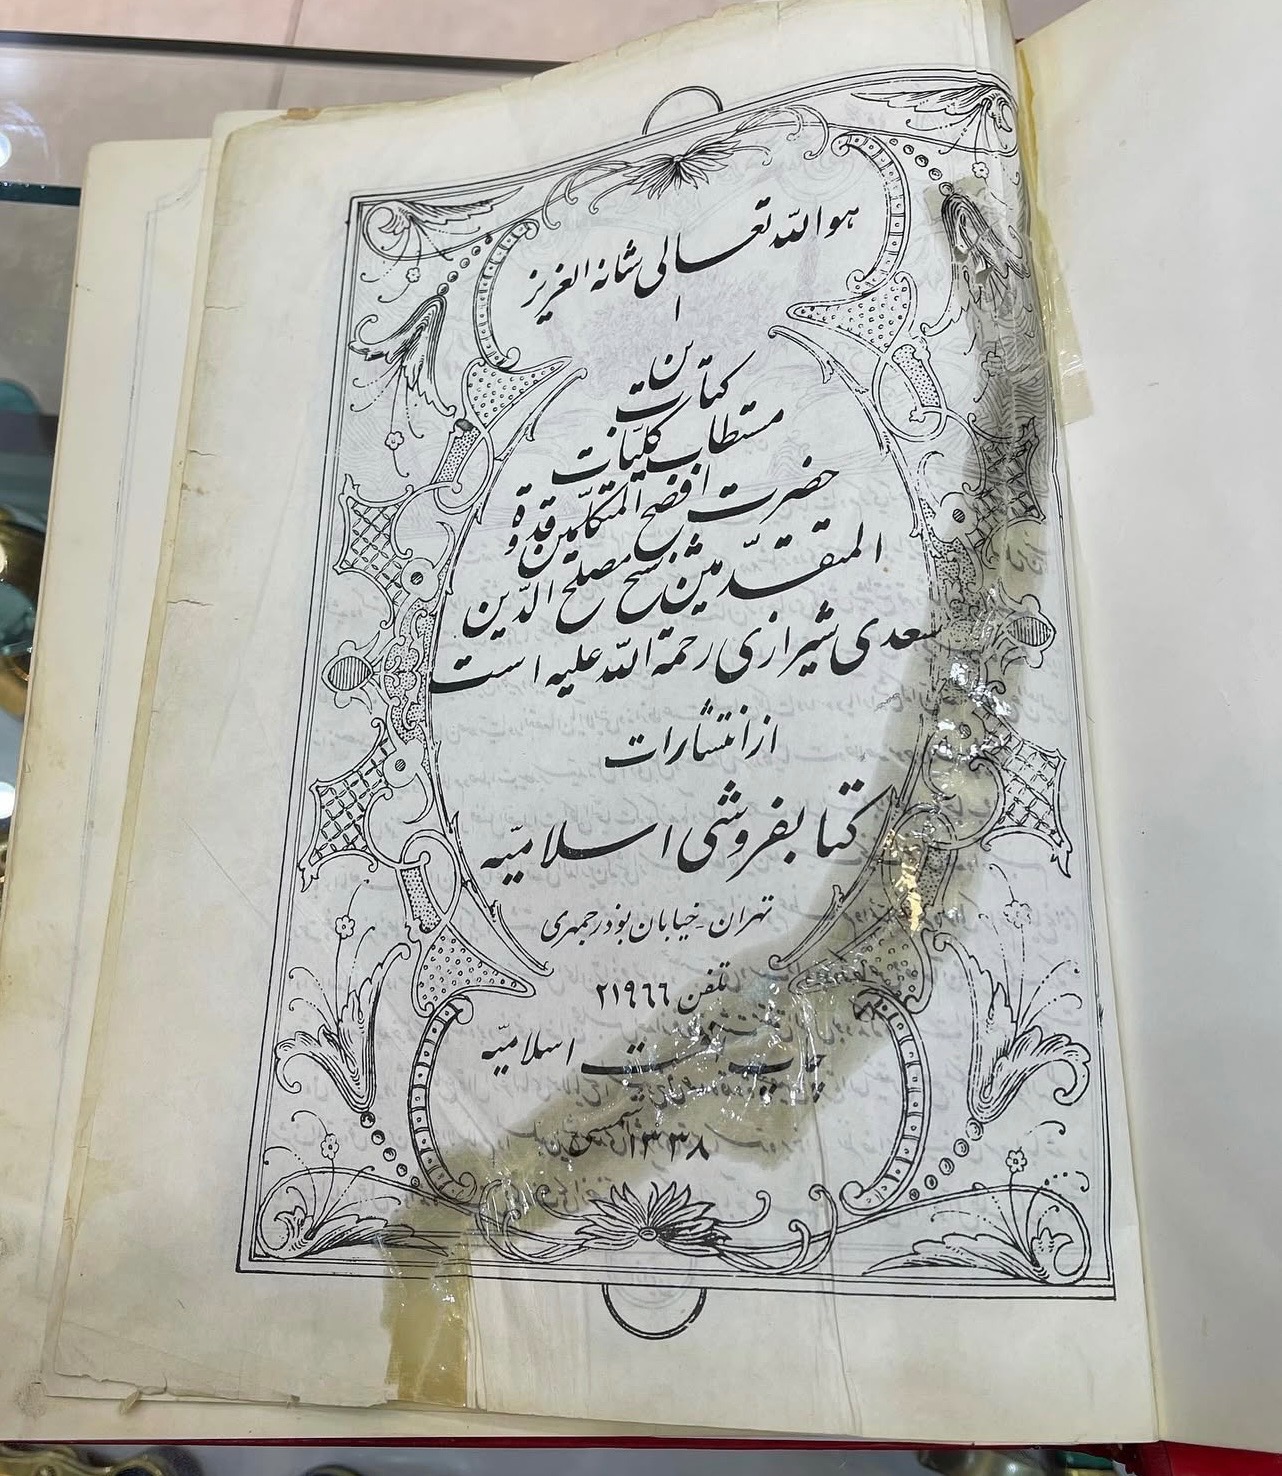 هو الله تعالی شانه العزیز
این
کتاب
مستطاب کلیات
حضرت افصح المتکلمین قدوة
المتقدمین شیخ مصلح الدین
سعدی شیرازی رحمة الله علیه است
از انتشارات
کتابفروشی اسلامیه
تهران - خیابان بوذرجمهری
تلفن ۲۱۹۶۶
چاپ افست اسلامیه
۱۳۳۸ شمسی